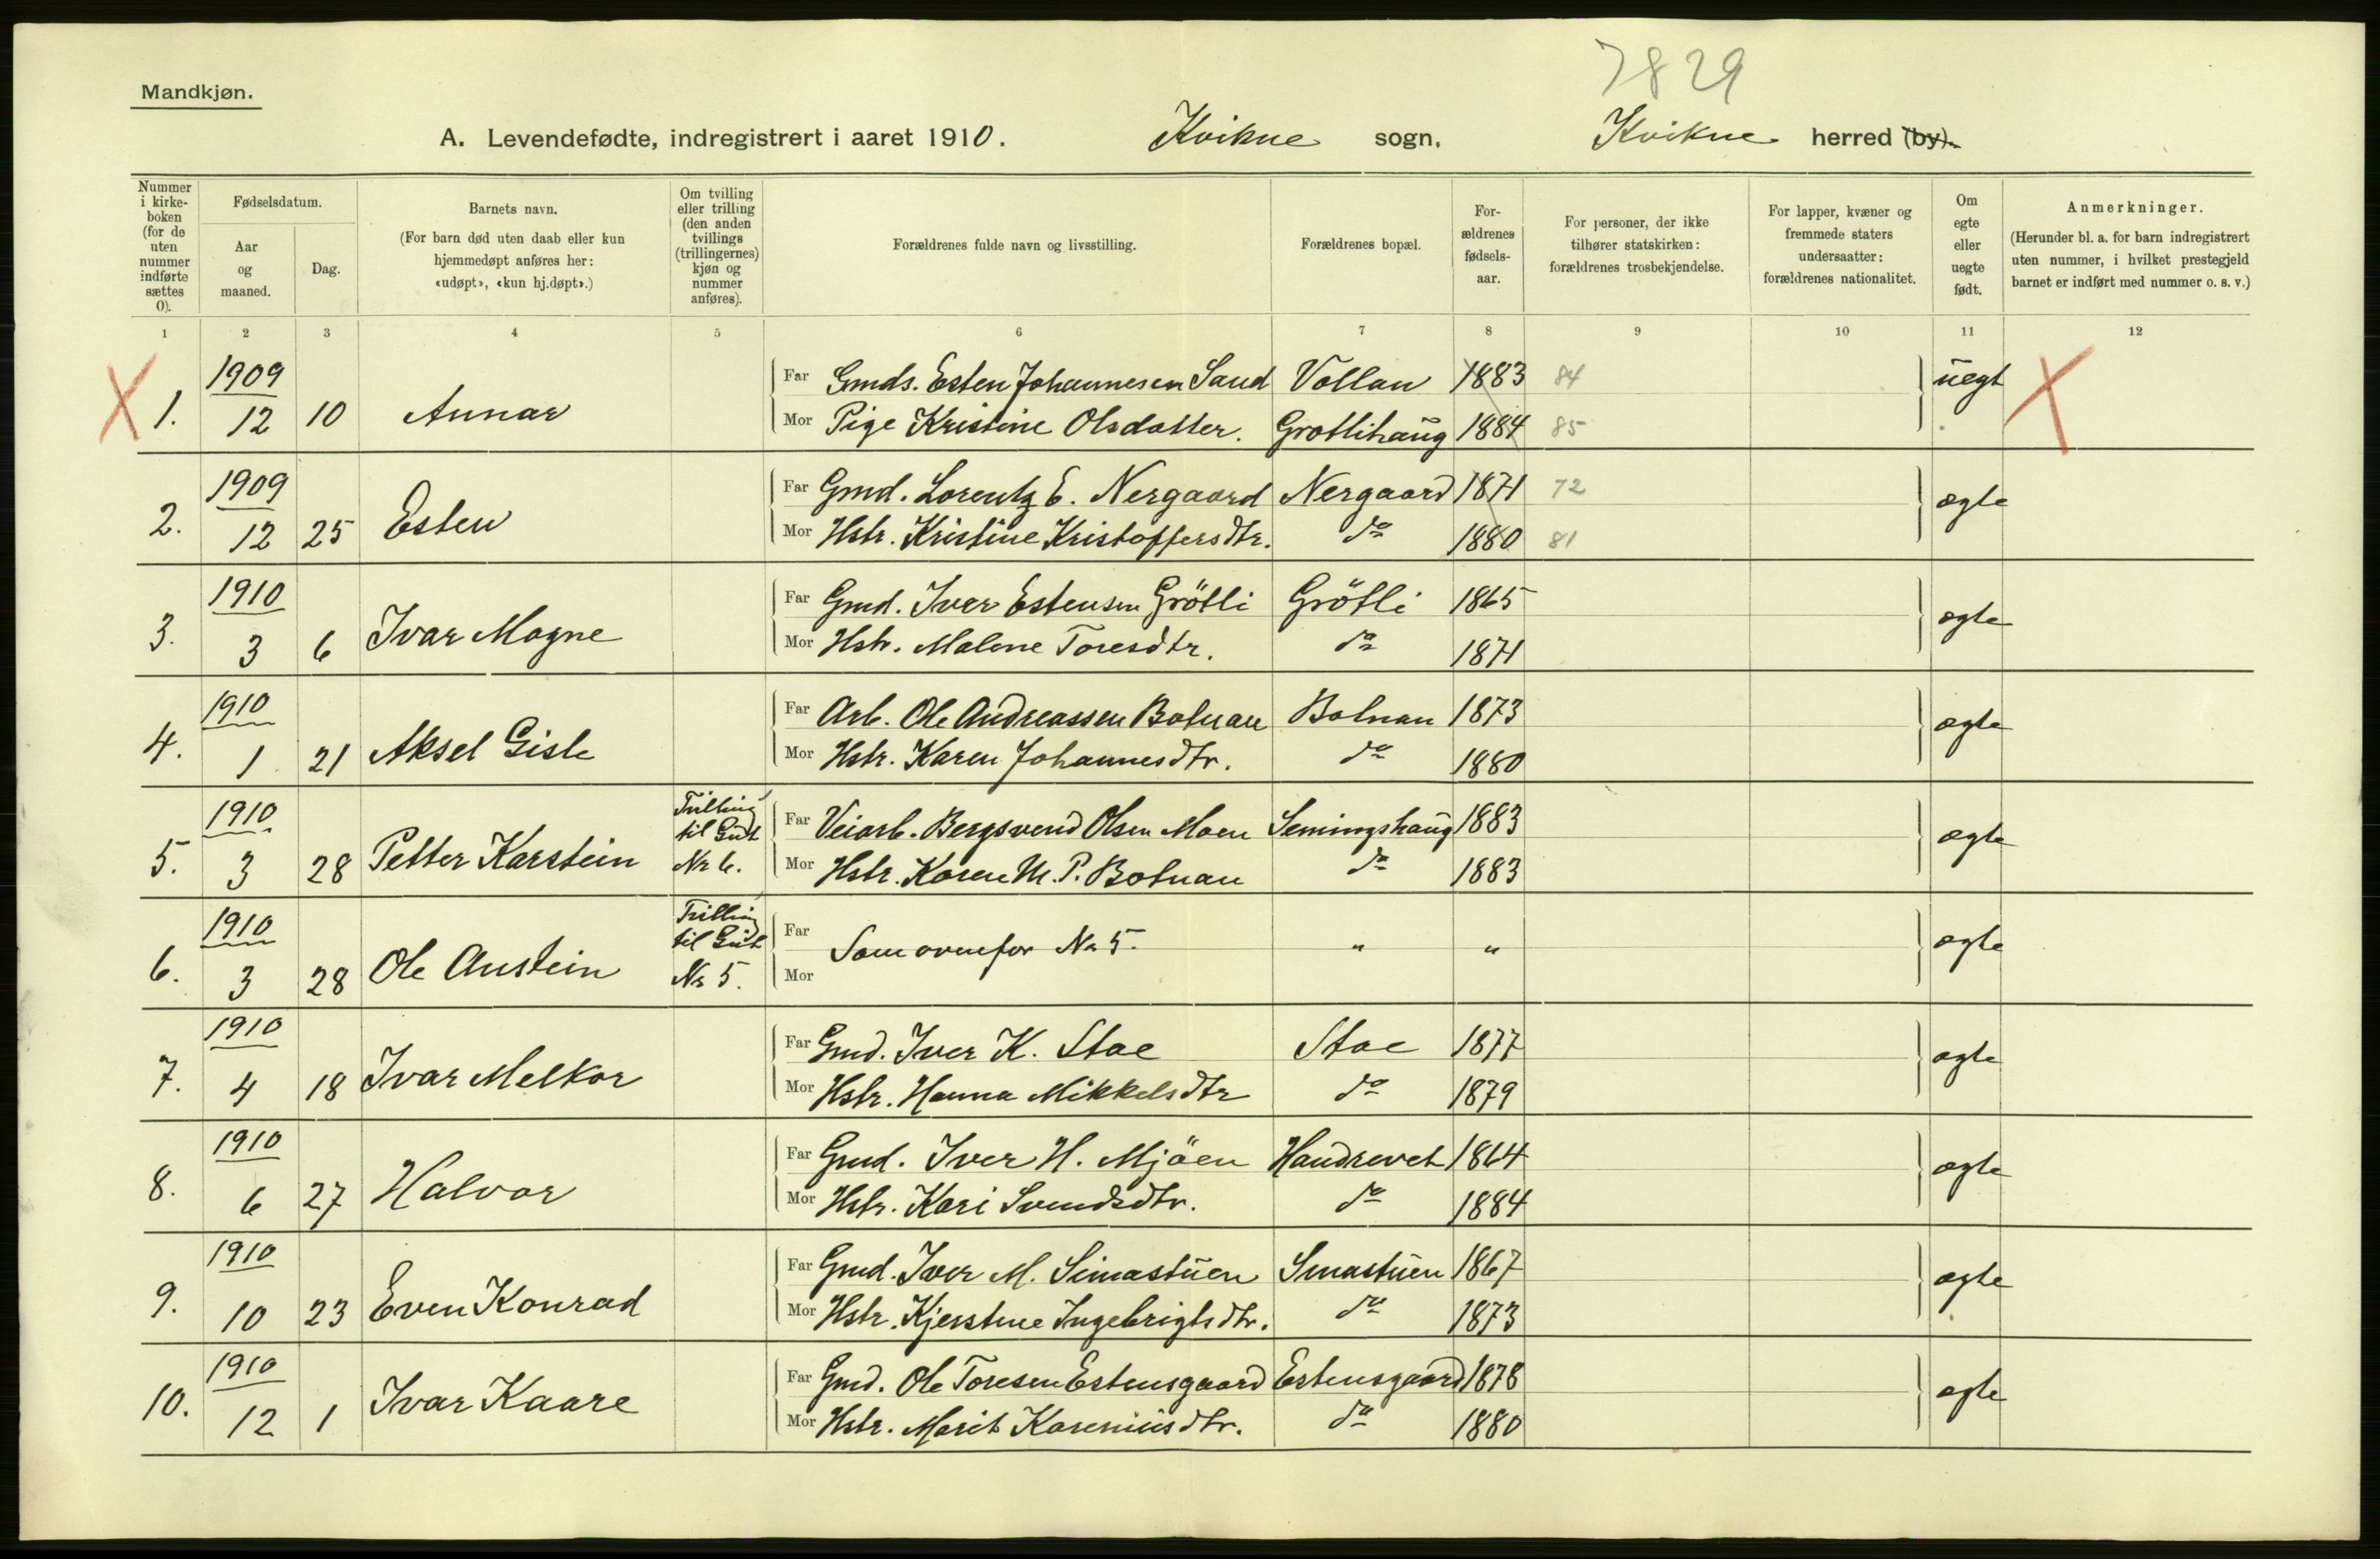 7829
Mandkjøn.
A. Levendefødte, indregistrert i aaret 1910. Kvikne sogn, Kvikne herred (by).
Nummer i kirke-boken (for de uten nummer indførte sættes 0).
Fødselsdatum.
Aar og maaned.
Dag.
Barnets navn.
(For barn død uten daab eller kun hjemmedøpt anføres her: «udøpt», «kun hj.døpt».)
Om tvilling eller trilling (den anden tvillings (trillingernes) kjøn og nummer anføres).
Forældrenes fulde navn og livsstilling.
Forældrenes bopæl.
For-ældrenes fødsels-aar.
For personer, der ikke tilhører statskirken: forældrenes trosbekjendelse.
For lapper, kvæner og fremmede staters undersaatter: forældrenes nationalitet.
Om egte eller uegte født.
Anmerkninger.
(Herunder bl. a. for barn indregistrert uten nummer, i hvilket prestegjeld barnet er indført med nummer o. s. v.)
1 2 3 4 5 6 7 8 9 10 11 12
X 1. 1909 12 10 Annar
Far Gmds. Esten Johannesen Sand Vollan 1883 84 uegt X
Mor Pige Kristine Olsdatter. Grøtlihaug 1884 85
2. 1909 12 25 Esten
Far Gmd. Lorentz E. Nergaard Nergaard 1871 72 ægte
Mor Hstr. Kristine Kristoffersdtr. do 1880 81
3. 1910 3 6 Ivar Magne
Far Gmd. Iver Estensen Grötli Grötli 1865 ægte
Mor Hstr. Malene Toresdtr. do 1871
4. 1910 1 21 Aksel Gisle
Far Arb. Ole Andreassen Bolnan Bolnan 1873 ægte
Mor Hstr. Karen Johannesdtr. do 1880
5. 1910 3 28 Petter Karstein Tvilling til Gut Nr 6.
Far Veiarb. Bergsvend Olsen Moen Semingshaug 1883 ægte
Mor Hstr. Karen M. P. Bolnan do 1883
6. 1910 3 28 Ole Austein Tvilling til Gut Nr 5.
Far Som ovenfor Nr 5. " " ægte
Mor
7. 1910 4 18 Ivar Melkor
Far Gmd. Iver K. Stae Stae 1877 ægte
Mor Hstr. Hanna Mikkelsdtr do 1879
8. 1910 6 27 Halvor
Far Gmd. Iver H. Mjöen Handrevet 1864 ægte
Mor Hstr. Kari Svendsdtr. do 1884
9. 1910 10 23 Even Konrad
Far Gmd. Iver M. Simastuen Smastuen 1867 ægte
Mor Hstr. Kjerstine Ingebrigtsdtr. do 1873
10. 1910 12 1 Ivar Kaare
Far Gmd. Ole Toresen Estensgaard Estensgaard 1878 ægte
Mor Hstr. Marit Kareniusdtr. do 1880